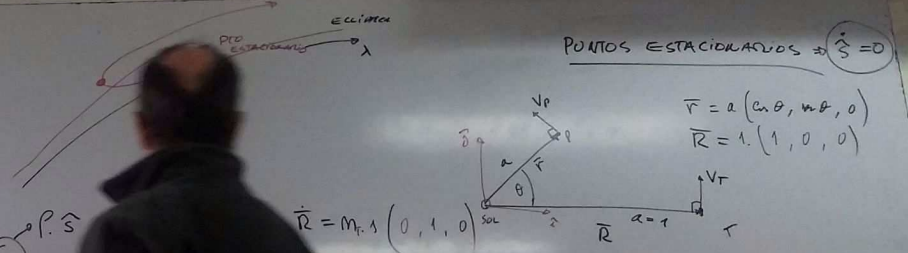 ECLIPTICA
PTO
ESTACIONARIO
λ
PUNTOS ESTACIONARIOS ⇒ ṡ̂ = 0
r̄ = a (cos θ, sen θ, 0)
R̄ = 1. (1, 0, 0)
V_P
P
a
r̄
θ
V_T
SOL
a = 1
R̄
T
ρ. ŝ
Ṙ̄ = n_T. 1 (0, 1, 0)